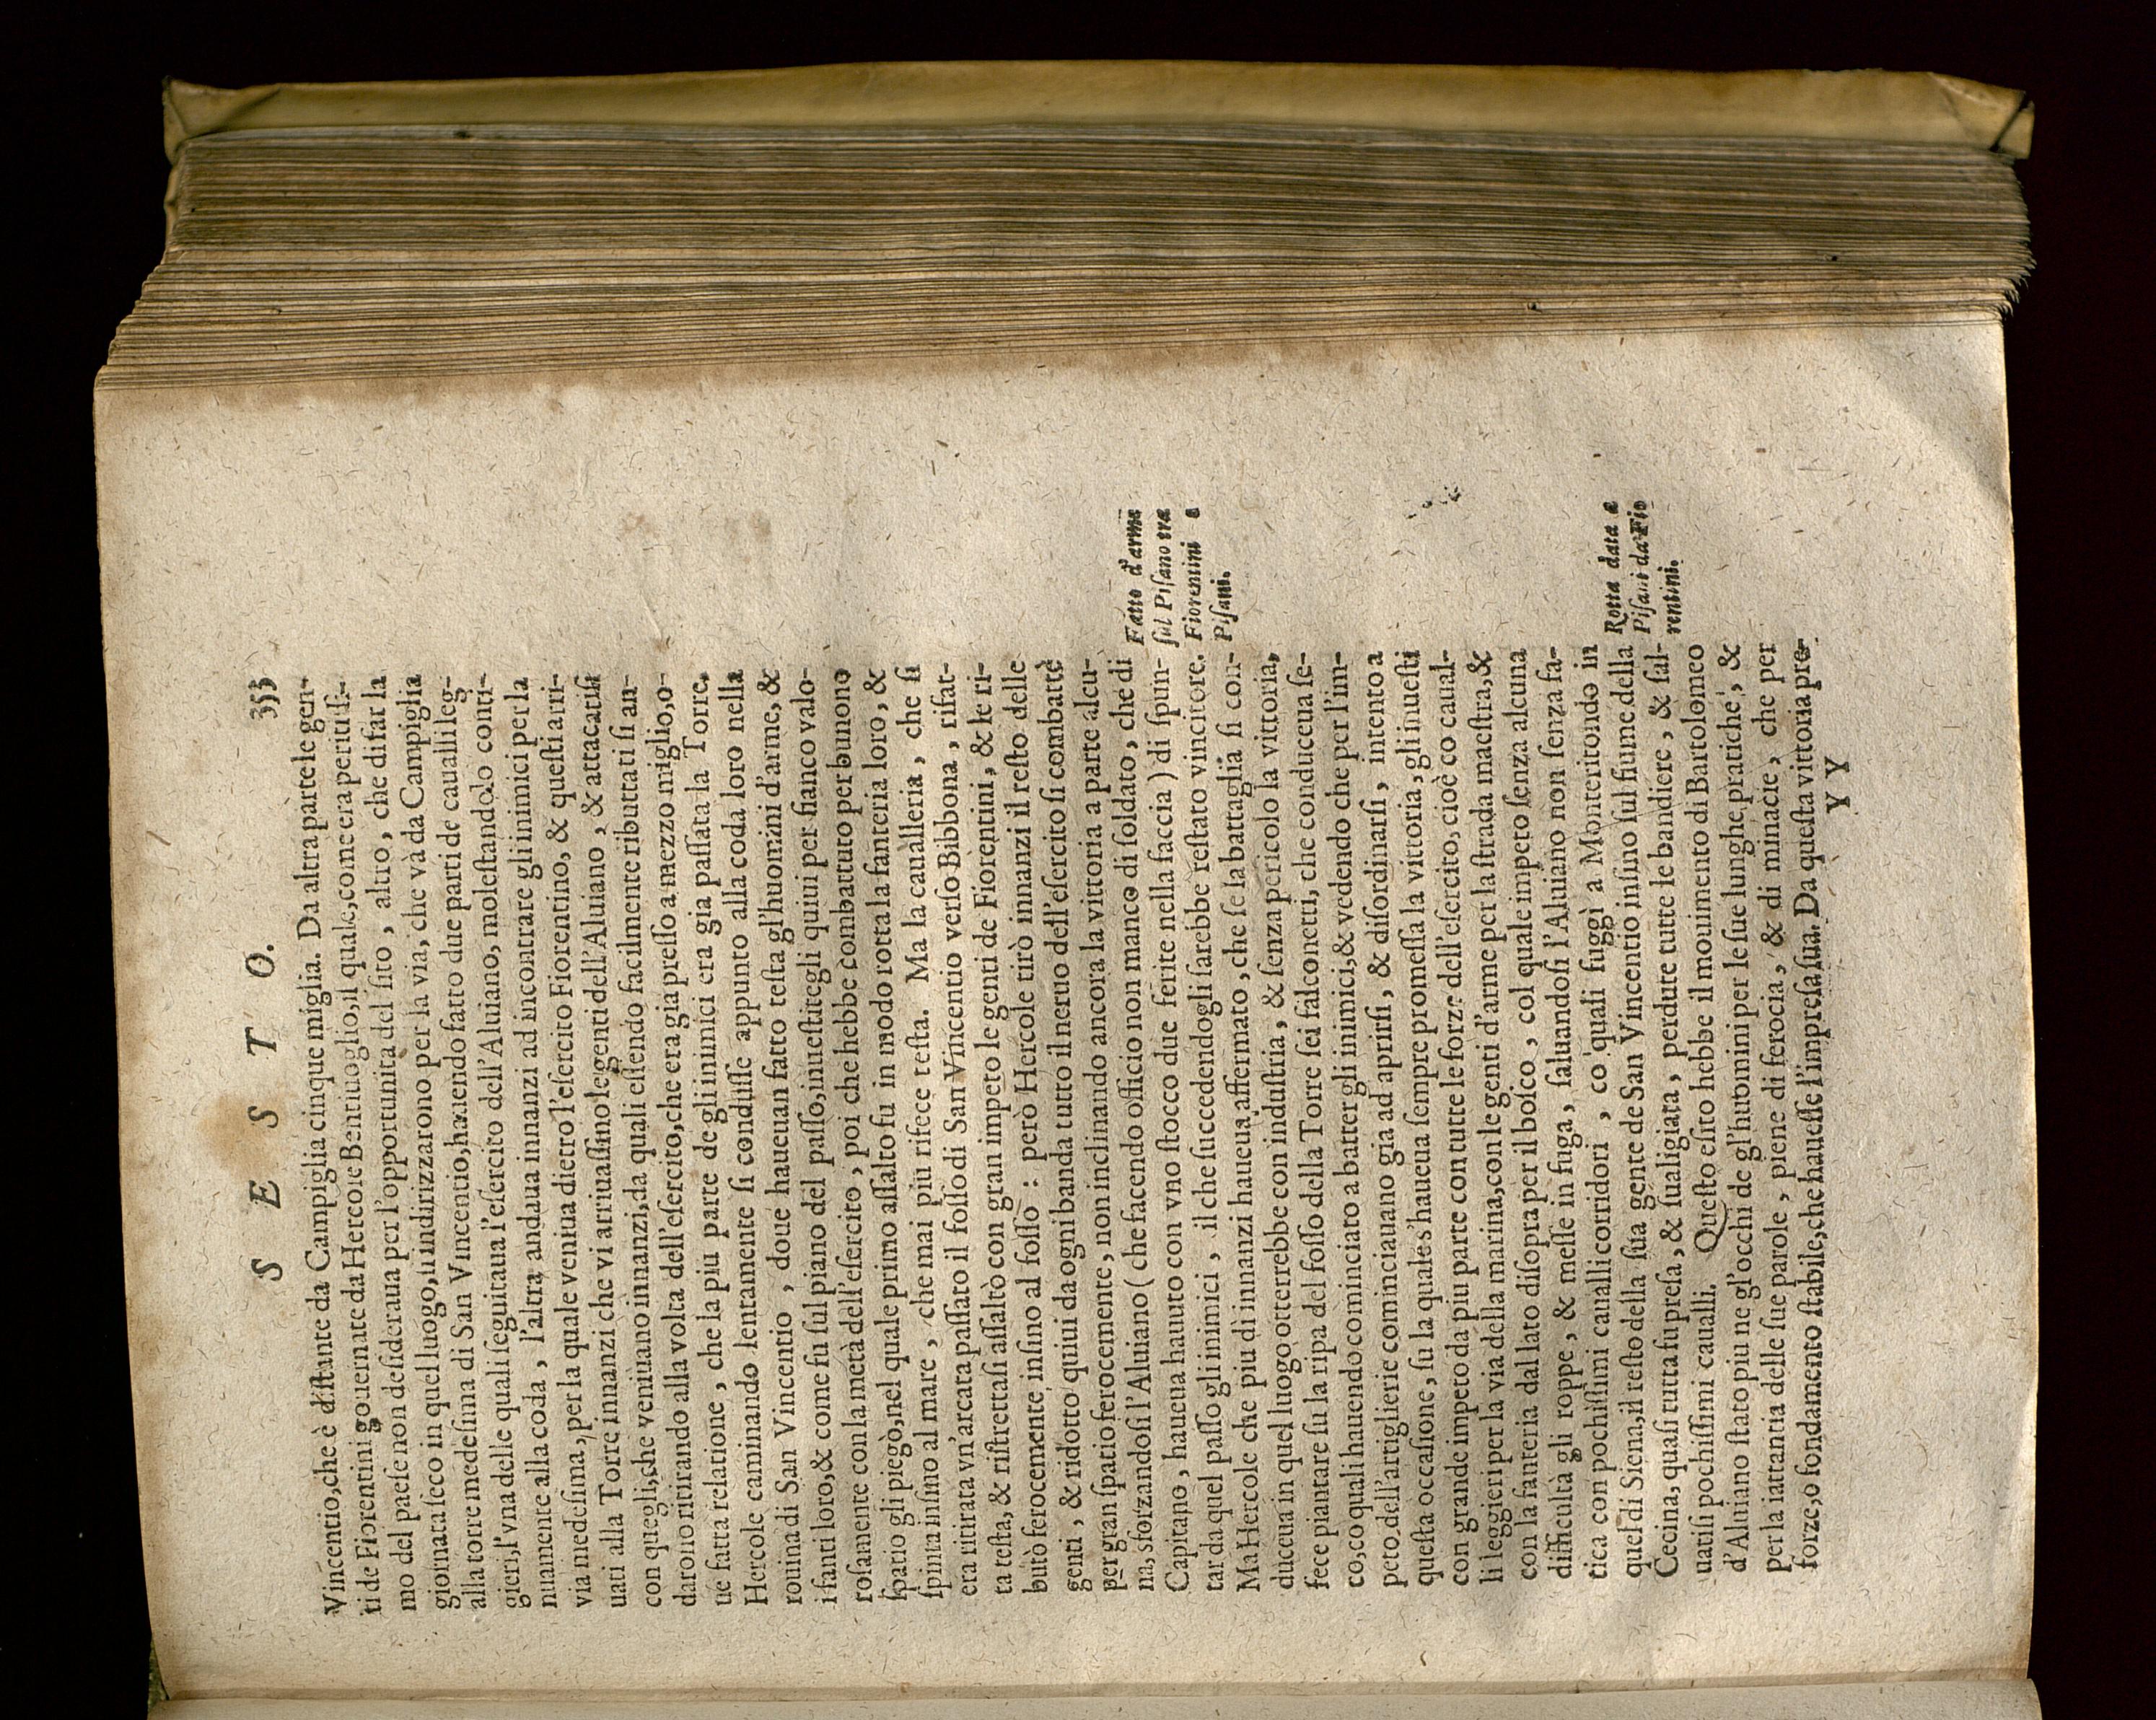 S E S T O. 353
Vincentio, che è distante da Campiglia cinque miglia. Da altra parte le gen-
ti de Fiorentini gouernate da Hercole Bentiuoglio, il quale, come era peritissi-
mo del paese non desideraua per l'opportunita del sito, altro, che di far la
giornata seco in quel luogo, si indirizzarono per la via, che và da Campiglia
alla torre medesima di San Vincentio, hauendo fatto due parti de caualli leg-
gieri, l'vna delle quali seguitaua l'esercito dell'Aluiano, molestandolo conti-
nuamente alla coda, l'altra andaua innanzi ad incontrare gli inimici per la
via medesima, per la quale veniua dietro l'esercito Fiorentino, & questi arri-
uati alla Torre innanzi che vi arriuassino le genti dell'Aluiano, & attacatisi
con quegli, che veniuano innanzi, da quali essendo facilmente ributtati si an-
darono ritirando alla volta dell'esercito, che era gia presso a mezzo miglio, o-
ue fatta relatione, che la piu parte de gli inimici era gia passata la Torre,
Hercole caminando lentamente si condusse appunto alla coda loro nella
rouina di San Vincentio, doue haueuan fatto testa gl'huomini d'arme, &
i fanti loro, & come fu sul piano del passo, inuestitegli quiui per fianco valo-
rosamente con la metà dell'esercito, poi che hebbe combattuto per buuono
spatio gli piegò, nel quale primo assalto fu in modo rotta la fanteria loro, &
spinta insino al mare, che mai più rifece testa. Ma la caualleria, che si
era ritirata vn'arcata passato il fosso di San Vincentio verso Bibbona, rifat-
ta testa, & ristrettasi assaltò con gran impeto le genti de Fiorentini, & le ri-
butò ferocemente insino al fosso: però Hercole tirò innanzi il resto delle
genti, & ridotto quiui da ogni banda tutto il neruo dell'esercito si combattè
per gran spatio ferocemente, non inclinando ancora la vittoria a parte alcu-
na, sforzandosi l'Aluiano (che facendo officio non manco di soldato, che di
Capitano, haueua hauuto con vno stocco due ferite nella faccia) di spun-
tar da quel passo gli inimici, il che succedendogli sarebbe restato vincitore.
Ma Hercole che piu di innanzi haueua affermato, che se la battaglia si con-
duceua in quel luogo otterrebbe con industria, & senza pericolo la vittoria,
fece piantare su la ripa del fosso della Torre sei falconetti, che conduceua se-
co, co quali hauendo cominciato a batter gli inimici, & vedendo che per l'im-
peto dell'artiglierie cominciauano gia ad aprirsi, & disordinarsi, intento a
questa occasione, su la quale s'haueua sempre promessa la vittoria, gli inuesti
con grande impeto da piu parte con tutte le forze dell'esercito, cioè co caual-
li leggieri per la via della marina, con le genti d'arme per la strada maestra, &
con la fanteria dal lato disopra per il bosco, col quale impeto senza alcuna
difficultà gli roppe, & messe in fuga, saluandosi l'Aluiano non senza fa-
tica con pochissimi caualli corridori, co'quali fuggì a Monteritondo in
quel di Siena, il resto della sua gente de San Vincentio insino sul fiume della
Cecina, quasi tutta fu presa, & sualigiata, perdute tutte le bandiere, & sal-
uatisi pochissimi caualli. Questo esito hebbe il mouimento di Bartolomeo
d'Aluiano stato piu ne gl'occhi de gl'huomini per le sue lunghe pratiche, &
per la iattantia delle sue parole, piene di ferocia, & di minacie, che per
forze, o fondamento stabile, che hauesse l'impresa sua. Da questa vittoria pre-
Y Y
Fatto d'arme
sul Pisano tra
Fiorentini e
Pisani.
Rotta data a
Pisani da Fio
rentini.